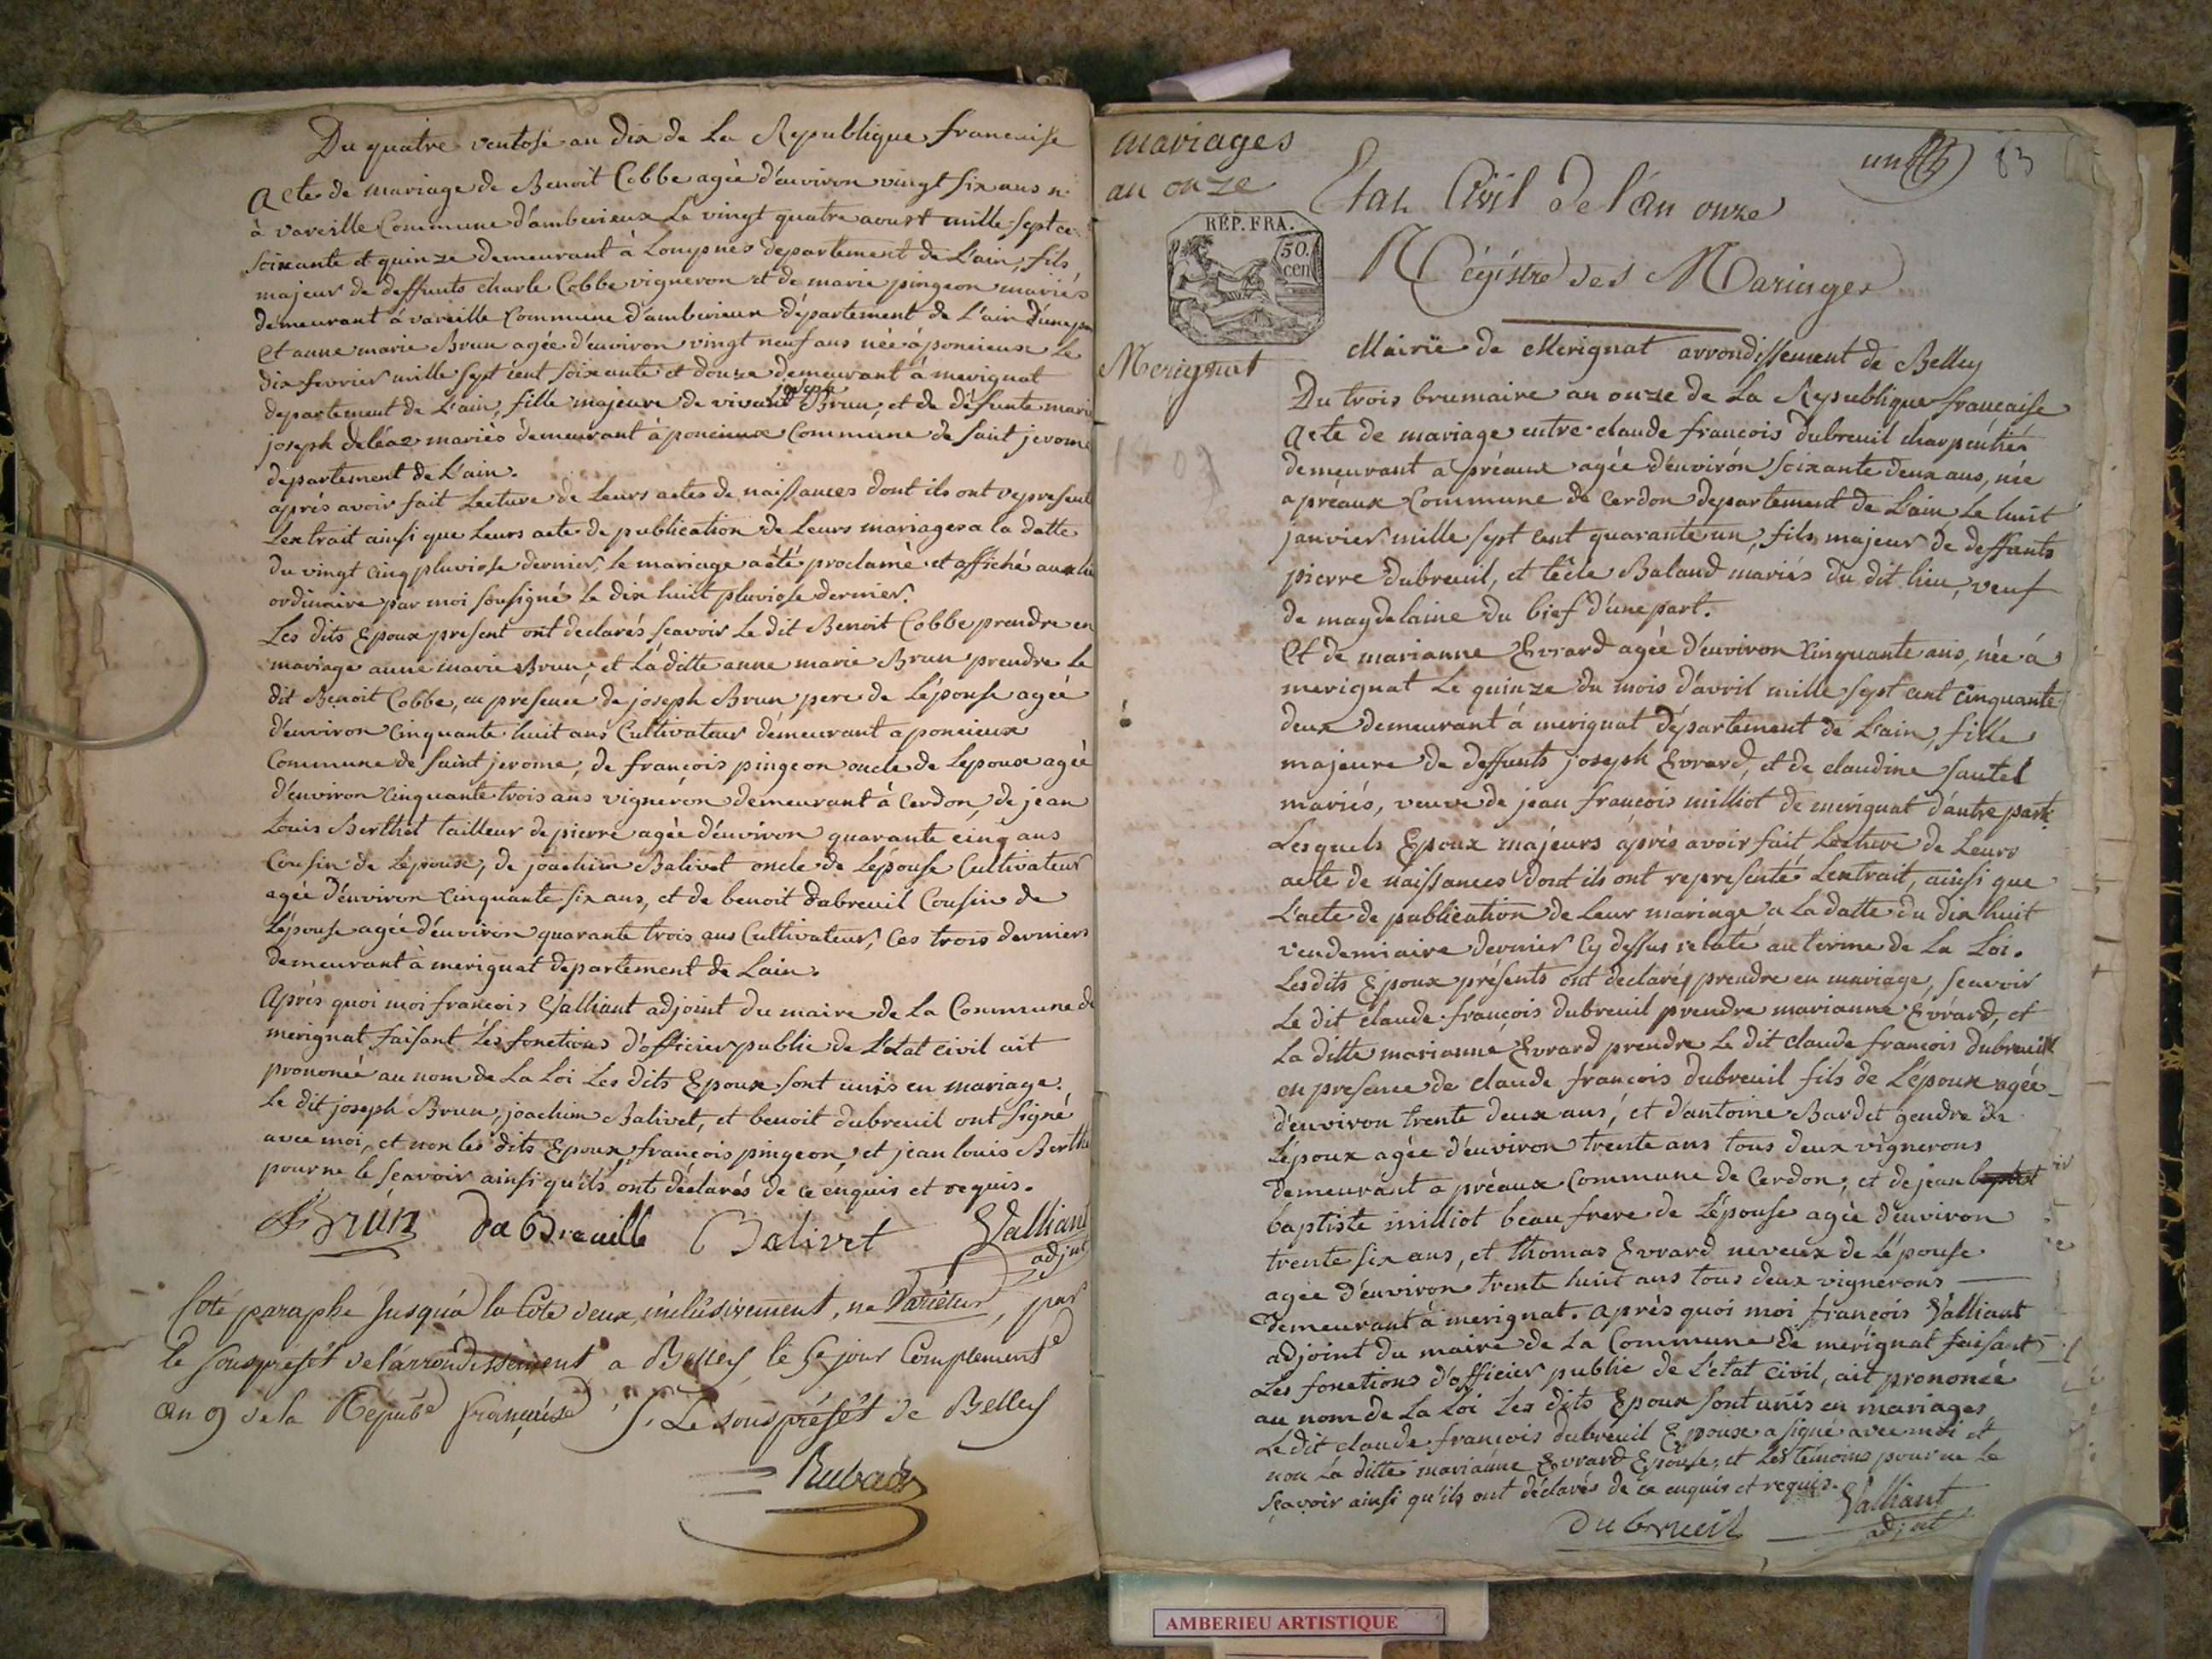 Du quatre ventose an dix de La Republique francaise
Acte de mariage de Benoit Cobbe agée d'environ vingt six ans n
à vareille Commune d'amberieux Le vingt quatre aoust mille sept ce
soixante et quinze demeurant à Lompnes departement de L'ain, fils
majeur de deffunts charle Cobbe vigneron et de marie pingeon mariés
demeurant à vareille Commune d'amberieux département de L'ain d'une par
Et anne marie Brun agée d'environ vingt neuf ans née à poncieux Le
dix fevrier mille sept cent soixante et douze demeurant à merignat
joseph
departement de L'ain, fille majeure de vivant Brun, et de défunte marie
joseph deléaz mariés demeurant à poncieux Commune de saint jerome
departement de L'ain.
après avoir fait Lecture de Leurs actes de naissances dont ils ont represent
L'extrait ainsi que Leurs acte de publication de Leurs mariages a la datte
du vingt cinq pluviose dernier, le mariage a été proclamé et affiché aux lie
ordinaire par moi sousigné le dix huit pluviose dernier.
Les dits Epoux present ont declarés scavoir Le dit Benoit Cobbe prendre en
mariage anne marie Brun, et La ditte anne marie Brun prendre Le
dit Benoit Cobbe, en presence de joseph Brun pere de L'épouse agée
d'environ Cinquante huit ans Cultivateur demeurant a poncieux
Commune de saint jerome, de françois pingeon oncle de Lepoux agée
d'environ Cinquante trois ans vigneron demeurant à Cerdon, de jean
Louis Berthet tailleur de pierre agée d'environ quarante cinq ans
Cousin de Lépouse, de joachim Balivet oncle de L'épouse Cultivateur
agée d'environ Cinquante six ans, et de benoit dubreuil Cousin de
L'épouse agée d'environ quarante trois ans Cultivateur, Ces trois derniers
demeurant à merignat departement de Lain.
Après quoi moi françois Valliant adjoint du maire de La Commune de
merignat faisant Les fonctions d'officier public de L'état civil ait
prononcé au nom de La Loi Les dits Epoux sont unis en mariage.
Le dit joseph Brun, joachim Balivet, et benoit dubreuil ont signé
avec moi, et non les dits Epoux, françois pingeon, et jean louis Berthe
pour ne le scavoir ainsi qu'ils ont déclarés de ce enquis et requis.
Brun du Breuille Balivet Valliant
adjnt
Coté paraphé jusqu'à la Cote deux inclusivement, ne Varietur, par
le sous préfêt de l'arrondissement a Belley le 5e jour Complementre
an 9 de la Répube française Le sous préfêt de Belley
Rubat
mariages
an onze
un 83
Etat Civil de l'an onze
RÉP. FRA.
50.
cen
Régistre des Mariages
Merignat
Mairie de Merignat arrondissement de Belley
Du trois brumaire an onze de La Republique francaise
Acte de mariage entre claude francois dubreuil charpentier
demeurant a préaux agée d'environ soixante deux ans, née
a préaux Commune de Cerdon departement de L'ain Le huit
janvier mille sept cent quarante un, fils majeur de deffunts
pierre dubreuil, et têcle Baland mariés du dit lieu, veuf
de magdelaine du bief d'une part.
Et de marianne Evrard agée d'environ Cinquante ans, née á
merignat Le quinze du mois d'avril mille sept cent Cinquante
deux demeurant à merignat département de L'ain, fille
majeure de deffunts joseph Evrard, et de claudine sautel
mariés, veuve de jean françois milliot de merignat d'autre part.
Lesquels Epoux majeurs après avoir fait Lecture de Leurs
acte de naissances dont ils ont representé Lextrait, ainsi que
L'acte de publication de Leur mariage a La datte du dix huit
vendemiaire dernier Cy dessus relaté au terme de La Loi.
Les dits Epoux présents ont declarés prendre en mariage, scavoir
Le dit claude françois dubreuil prendre marianne Evrard, et
La ditte marianne Evrard prendre Le dit claude francois dubreuil
en presence de claude françois dubreuil fils de L'époux agée
d'environ trente deux ans, et d'antoine Bardet gendre de
L'époux agée d'environ trente ans tous deux vignerons
demeurant a préaux Commune de Cerdon, et de jean
baptiste milliot beau frere de L'épouse agée d'environ
trente six ans, et thomas Evrard neveux de L'épouse
agée d'environ trente huit ans tous deux vignerons
demeurant à merignat. après quoi moi françois Valliant
adjoint du maire de La Commune de merignat faisant
Les fonctions d'officier public de L'état Civil, ait prononcé
au nom de La Loi Les dits Epoux sont unis en mariages
Le dit claude françois dubreuil Epoux a signé avec moi et
non La ditte marianne Evrard Epouse, et Les temoins pour ne le
sçavoir ainsi qu'ils ont déclarés de ce enquis et requis.
dubreuil Valliant
adjnt
AMBERIEU ARTISTIQUE